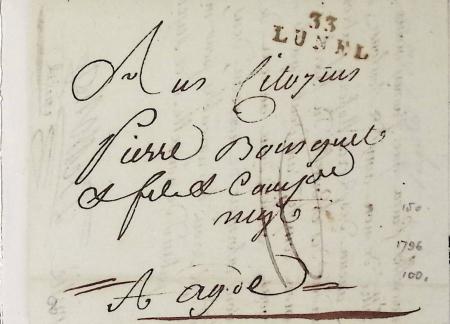 33
LUNEL
Aux Citoyens
Pierre Bousquet
& fils & Caujoe
negt
150
1796
100,
A agde